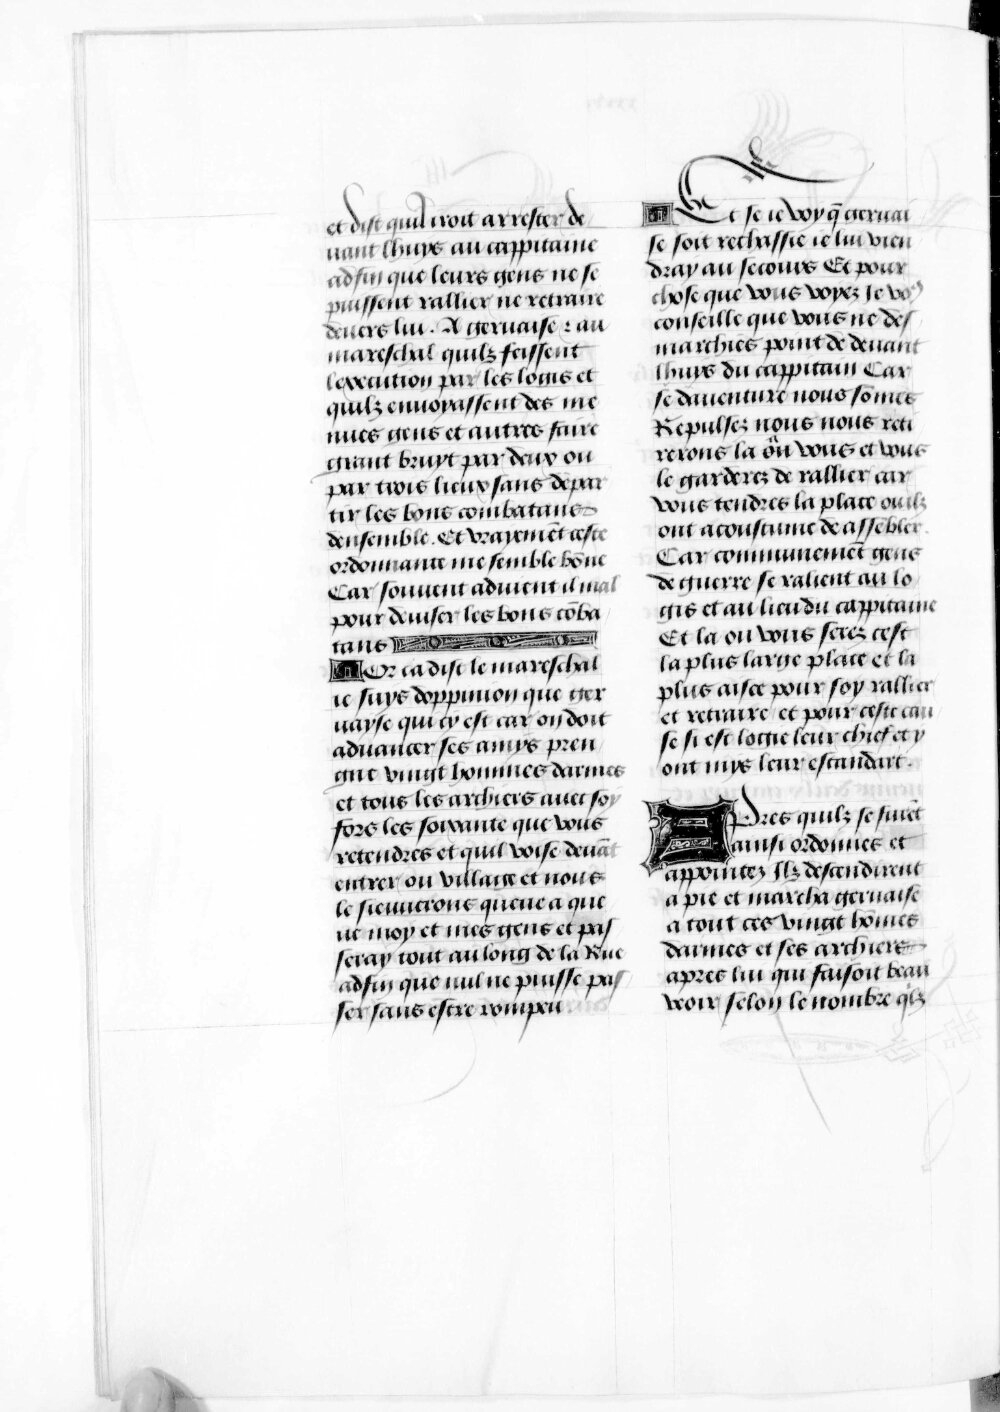 et dist quil iroit arrester de
uant lhuys au cappitaine
adfin que leurs gens ne se
puissent rallier ne retraire
deuers lui. A geruaise z au
mareschal quilz feissent
lexecution par les logis et
quilz enuoyassent des me
nues gens et autres faire
grant bruyt par deux ou
par trois lieux sans depar
tir les bons combatans
densemble. Et vrayemēt ceste
ordonnance me semble bōne
Car souuent aduient il mal
pour deuiser les bons cōba
tans
Or ca dist le mareschal
ie suys doppinion que ger
uayse qui cy est car on doit
aduancer ses amys pren
gne vingt hommes darmes
et tous les archiers auec soy
fors les soixante que vous
retendres et quil voise deuāt
entrer ou village et nous
le sieuuerons queue a que
ue moy et mes gens et pas
seray tout au long de la Rue
adfin que nul ne puisse pas
ser sans estre rompeu
Et se ie voy q̄ geruai
se soit rechassie ie lui vien
dray au secours Et pour
chose que vous voyez Je vo9
conseille que vous ne des
marchies point de deuant
lhuys du cappitain Car
se dauenture nous somes
Repulsez nous nous reti
rerons la ou vous et vous
le garderez de rallier car
vous tendres la place ou ilz
ont acoustume de assēbler.
Car communemēt gens
de guerre se ralient au lo
gis et au lieu du cappitaine
Et la ou vous serez cest
la plus large place et la
plus aisee pour soy rallier
et retraire et pour ceste cau
se si est logie leur chief et y
ont mys leur estandart.
Apres quilz se furēt
ainsi ordonnes et
appointez Ilz descendirent
a pie et marcha geruaise
a tout ces vingt hōmes
darmes et ses archiers
apres lui qui faisoit beau
veoir selon le nombre q̄lz